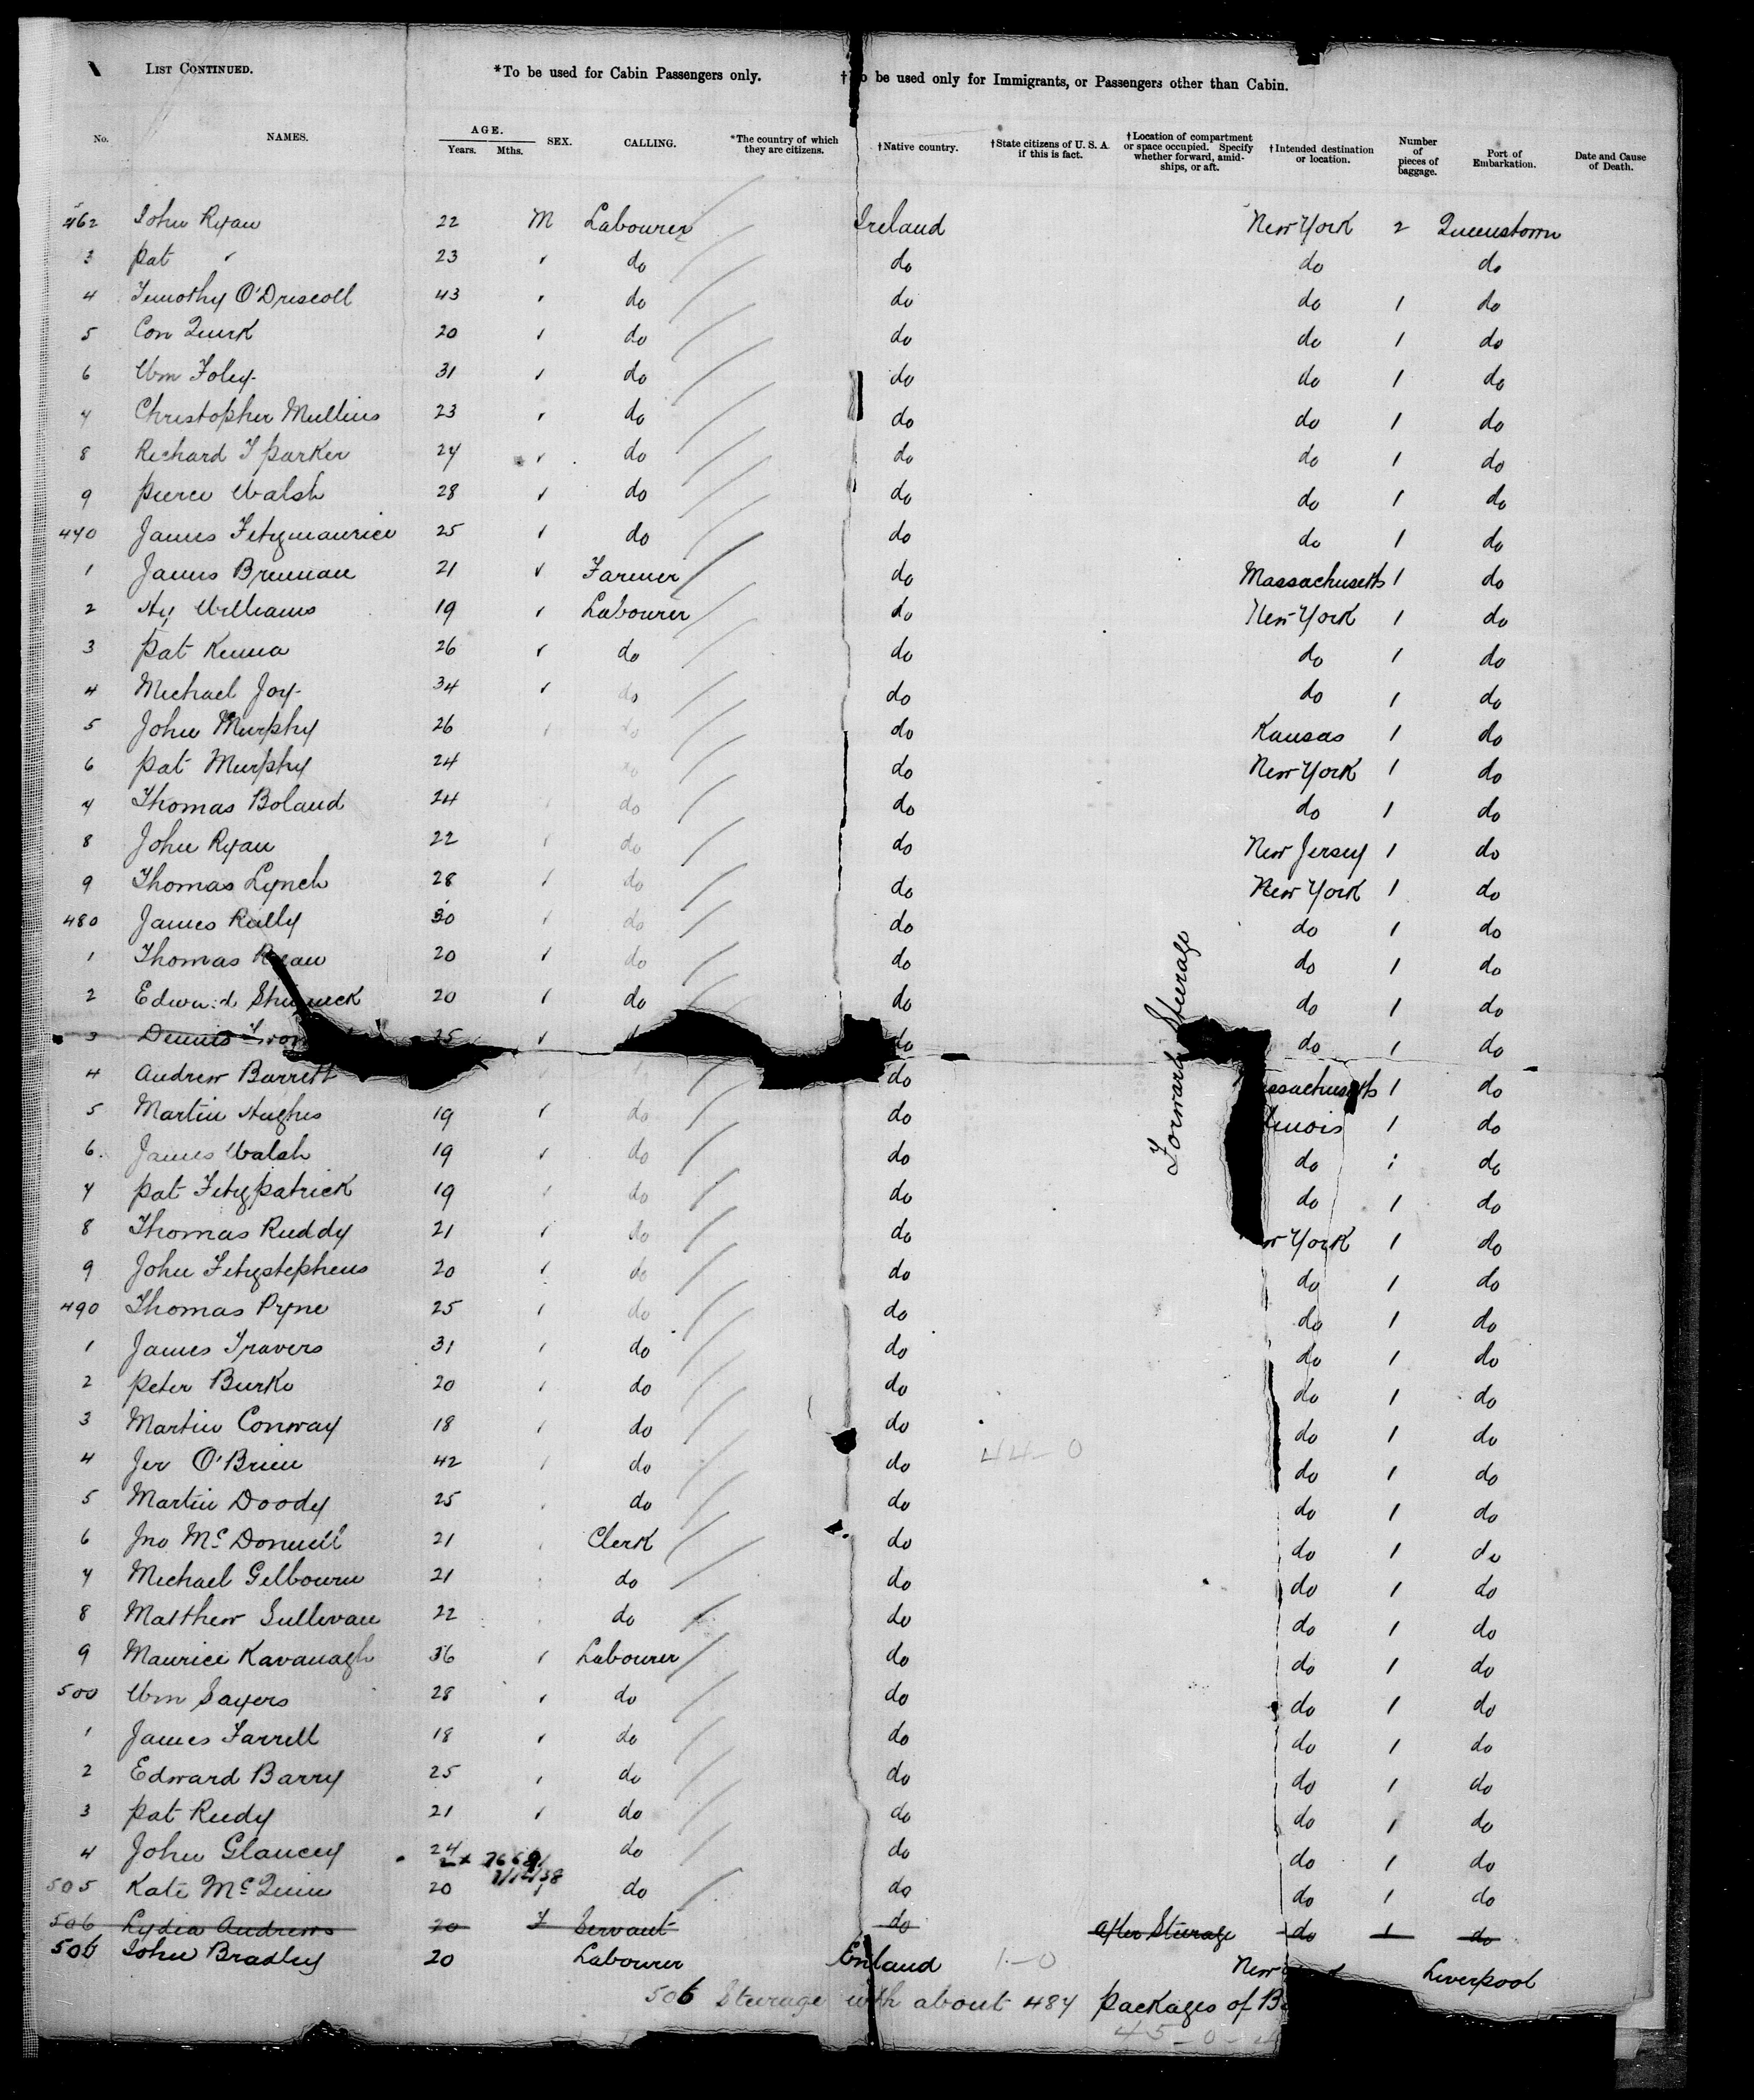 LIST CONTINUED. *To be used for Cabin Passengers only. † be used only for Immigrants, or Passengers other than Cabin.
No. NAMES. AGE. Years. Mths. SEX. CALLING. *The country of which they are citizens. †Native country. †State citizens of U. S. A. if this is fact. †Location of compartment or space occupied. Specify whether forward, amidships, or aft. †Intended destination or location. Number of pieces of baggage. Port of Embarkation. Date and Cause of Death.
462 John Ryan 22 M Labourer Ireland New York 2 Queenstown
3 Pat " 23 " do do do do
4 Timothy O'Driscoll 43 " do do do 1 do
5 Con Quirk 20 " do do do 1 do
6 Wm Foley 31 " do do do 1 do
7 Christopher Mullins 23 " do do do 1 do
8 Richard T Parker 24 " do do do 1 do
9 Pierce Walsh 28 " do do do 1 do
470 James Fitzmaurice 25 " do do do 1 do
1 James Brennan 21 " Farmer do Massachusetts 1 do
2 Hy Williams 19 " Labourer do New York 1 do
3 Pat Kenna 26 " do do do 1 do
4 Michael Joy 34 " do do do 1 do
5 John Murphy 26 " do do Kansas 1 do
6 Pat Murphy 24 do do New York 1 do
7 Thomas Boland 24 " do do do 1 do
8 John Ryan 22 " do do New Jersey 1 do
9 Thomas Lynch 28 " do do New York 1 do
480 James Reilly 30 " do do do 1 do
1 Thomas Ryan 20 " do do do 1 do
2 Edward 20 " do do do 1 do
3 Dennis 25 " do do 1 do
4 Andrew Barrett do ssachusetts 1 do
5 Martin Hughes 19 " do do linois 1 do
6. James Walsh 19 " do do do 1 do
7 Pat Fitzpatrick 19 " do do do 1 do
8 Thomas Ruddy 21 " do do w York 1 do
9 John Fitzstephens 20 " do do do 1 do
490 Thomas Pyne 25 " do do do 1 do
1 James Travers 31 " do do do 1 do
2 Peter Burke 20 " do do do 1 do
3 Martin Conway 18 " do do do 1 do
4 Jer O'Brien 42 " do do 44-0 do 1 do
5 Martin Doody 25 " do do do 1 do
6 Jno McDonnell 21 " Clerk do do 1 do
7 Michael Gelbourn 21 " do do do 1 do
8 Matthew Sullivan 22 " do do do 1 do
9 Maurice Kavanagh 36 " Labourer do do 1 do
500 Wm Sayers 28 " do do do 1 do
1 James Farrell 18 " do do do 1 do
2 Edward Barry 25 " do do do 1 do
3 Pat Rudy 21 " do do do 1 do
4 John Glancey 24 do do do 1 do
505 Kate McQuin 20 " do do do 1 do
506 Lydia Andrews 20 F Servant do After Steerage do 1 do
506 John Bradley 20 Labourer England 1-0 New Liverpool
506 Steerage with about 487 packages of B
45-0-
Forward Steerage